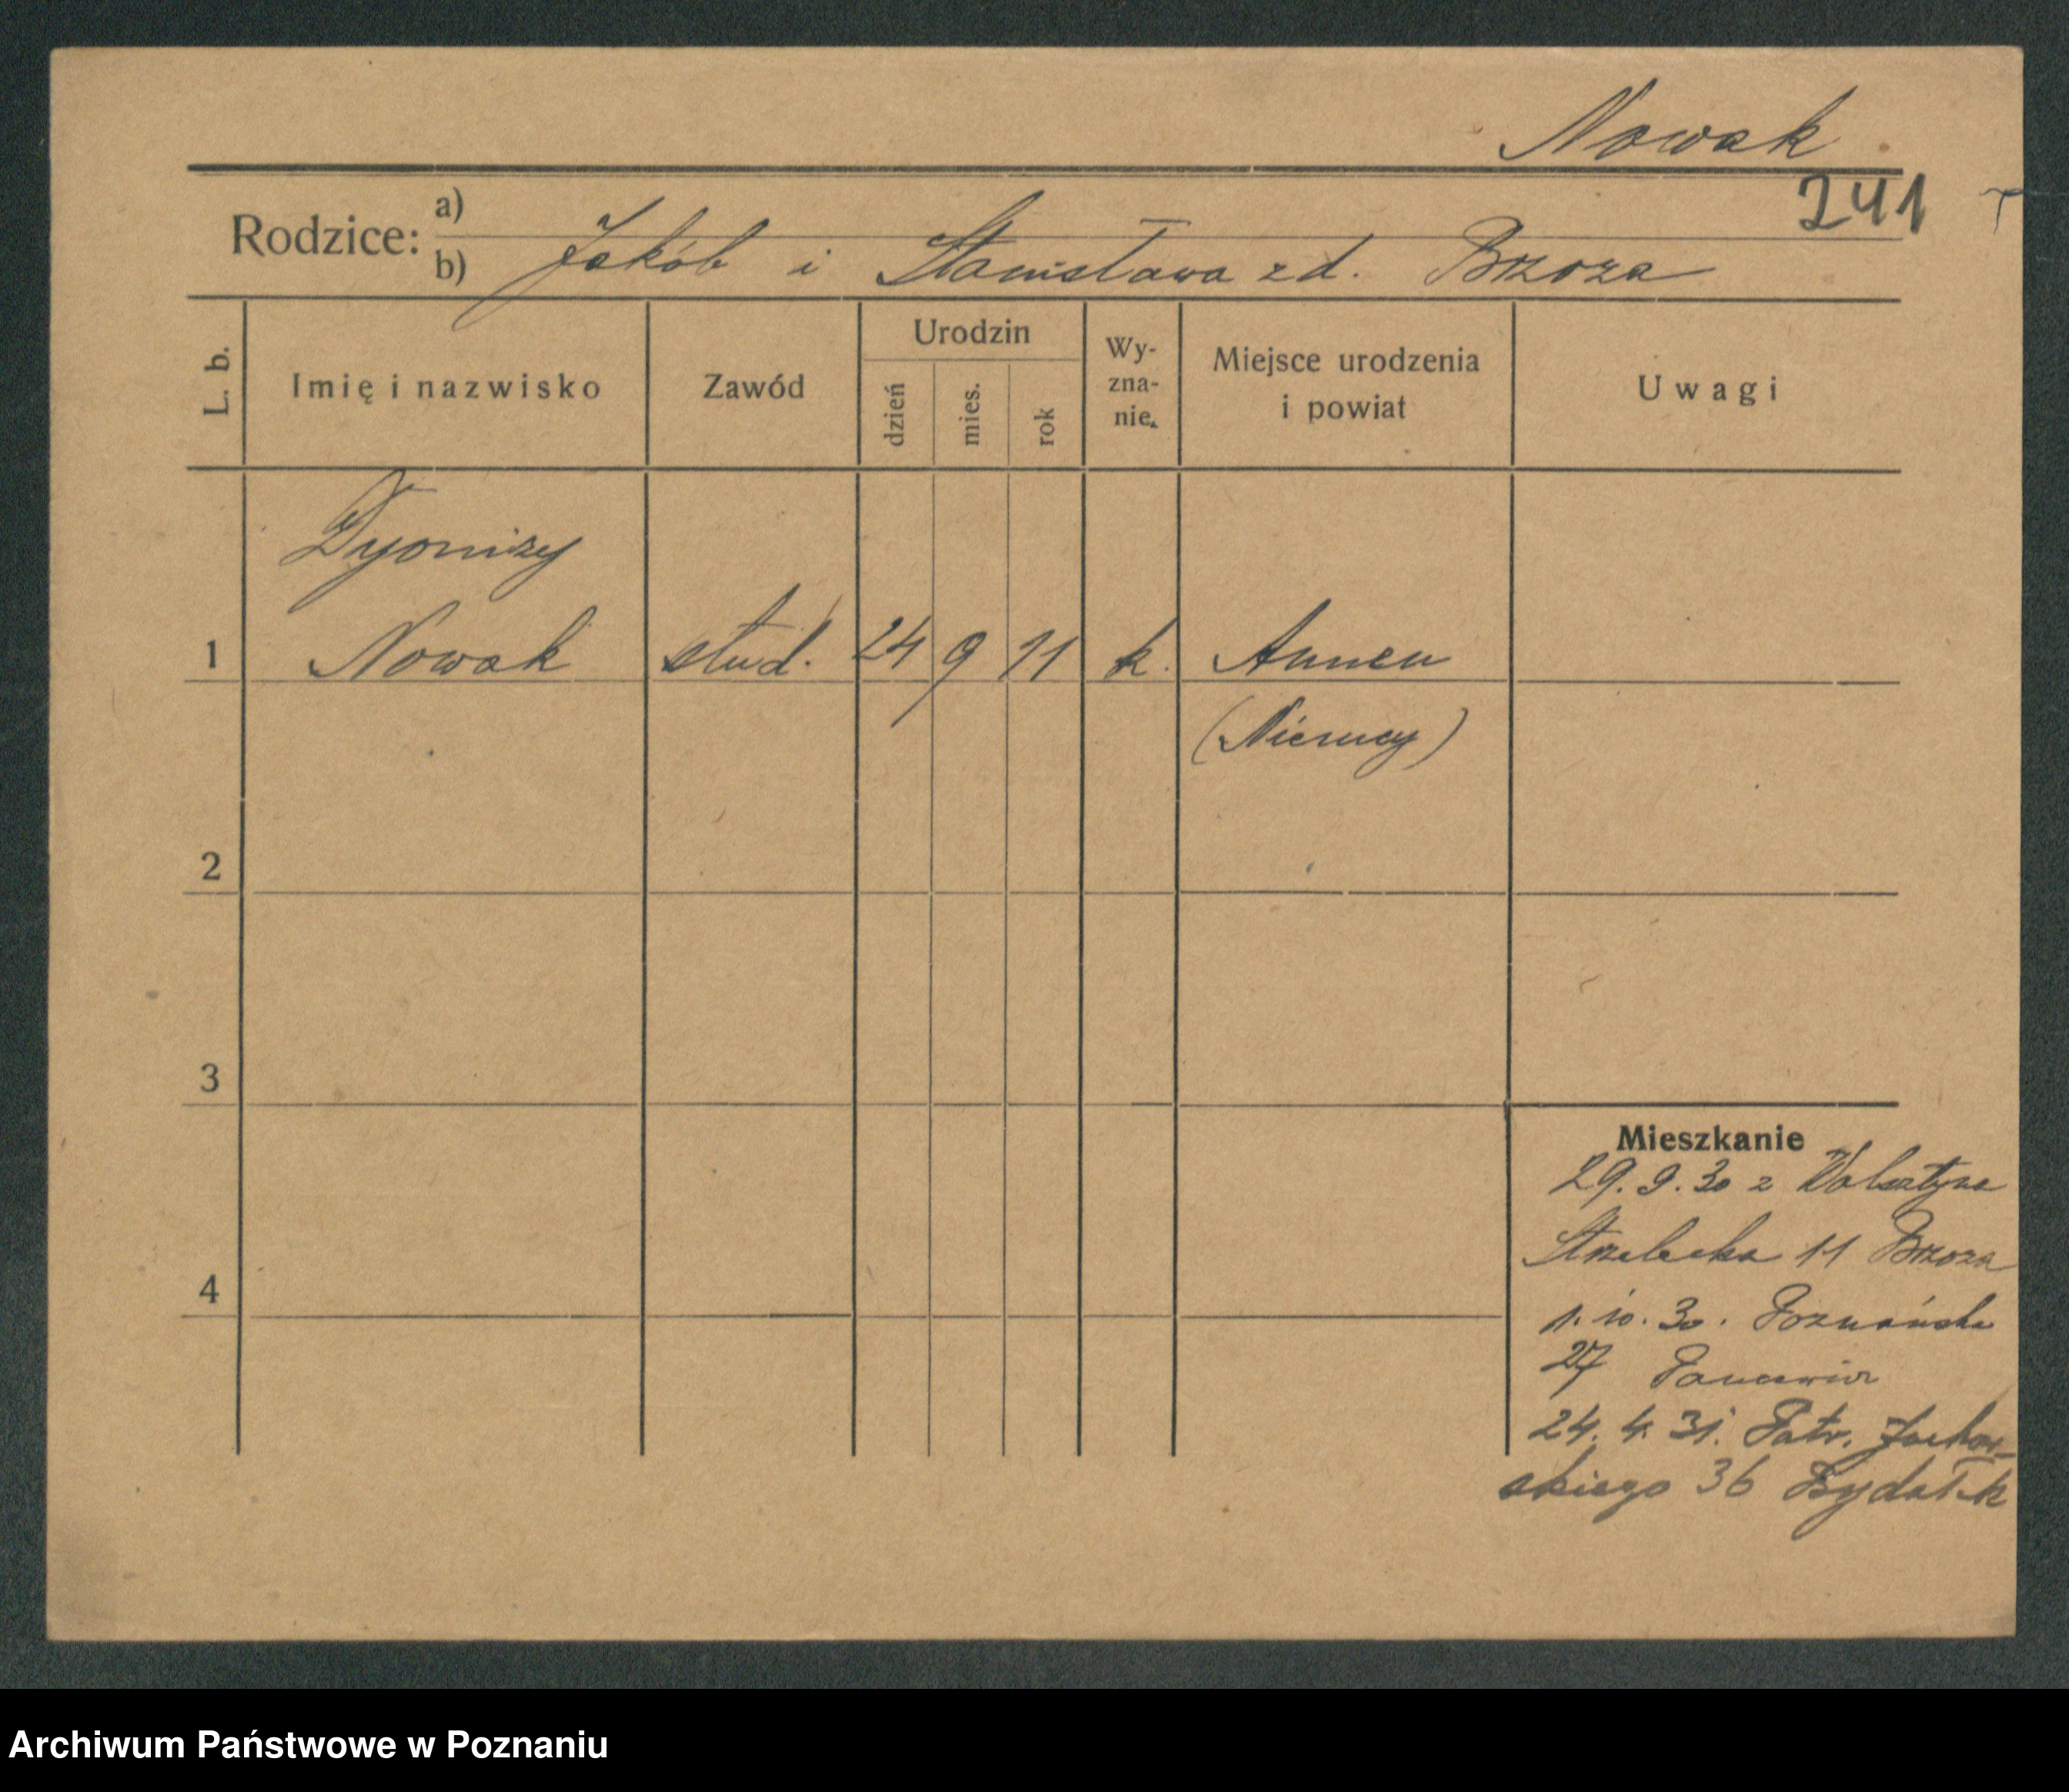 Nowak
241
Rodzice: a)
b) Jakób i Stanisława zd. Brzoza
L. b. Imię i nazwisko Zawód Urodzin dzień mies. rok Wy-zna-nie. Miejsce urodzenia i powiat Uwagi
Dyonizy
1 Nowak stud. 24 9 11 k. Annen
(Niemcy)
2
3
4
Mieszkanie
29. 9. 30 z Wolsztyna
Strzelecka 11 Brzoza
1. 10. 30. Poznańska
27
24. 4. 31. Patr. Jackow-
skiego 36
Archiwum Państwowe w Poznaniu